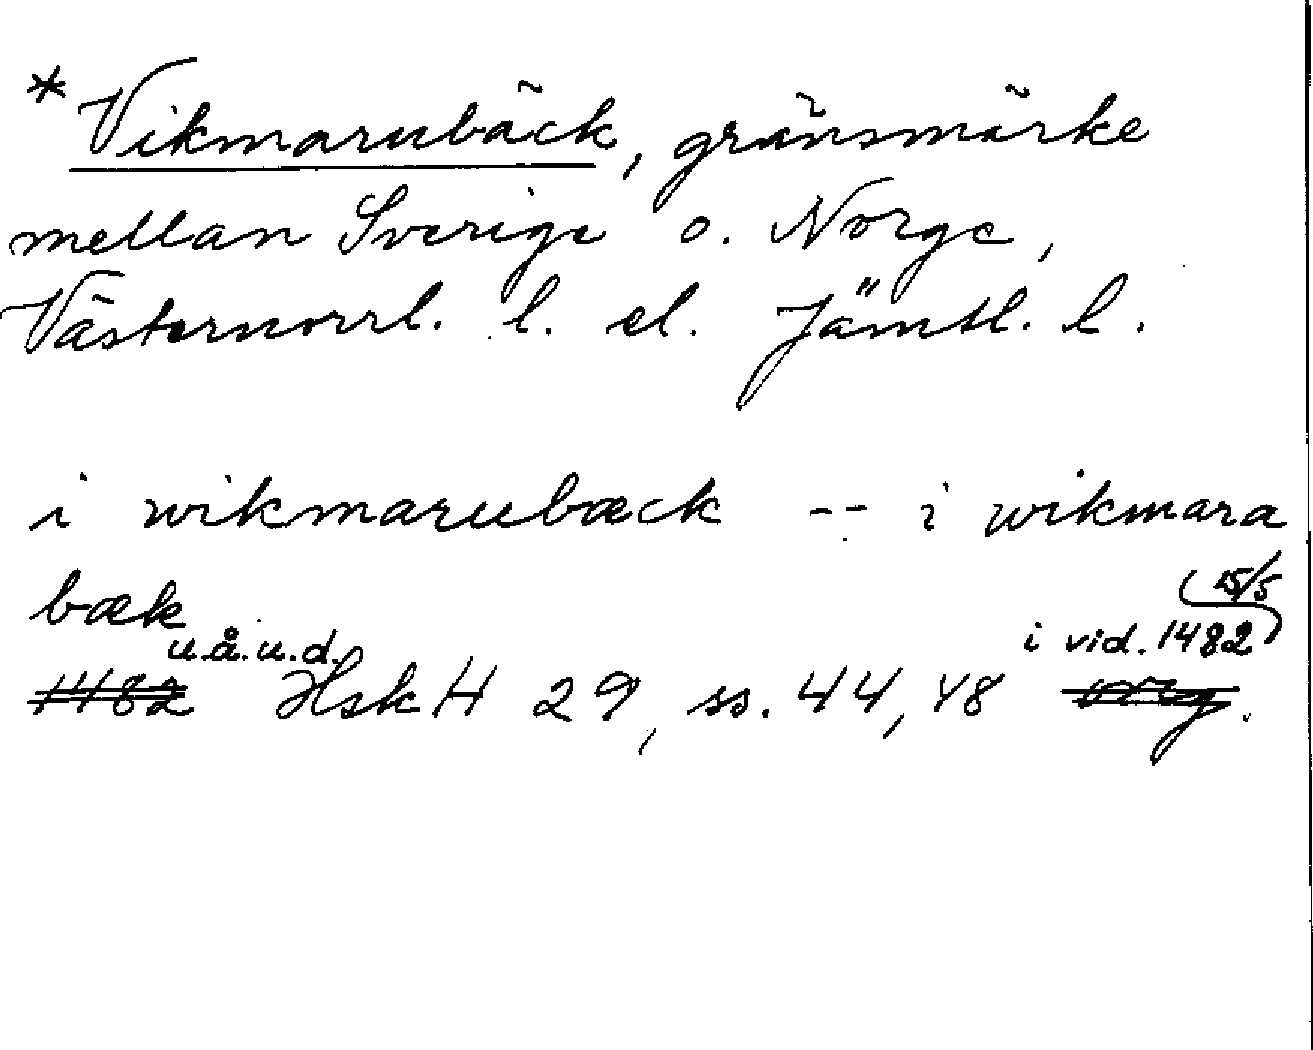 * Vikmarubäck, gränsmärke
mellan Sverige o. Norge,
Västernorrl. l. el. Jämtl. l.
i wikmarubæck -- i wikmara
bæk
15/5
u.å.u.d. i vid. 1482
1482 Hsk H 29, ss. 44, 48 orig.